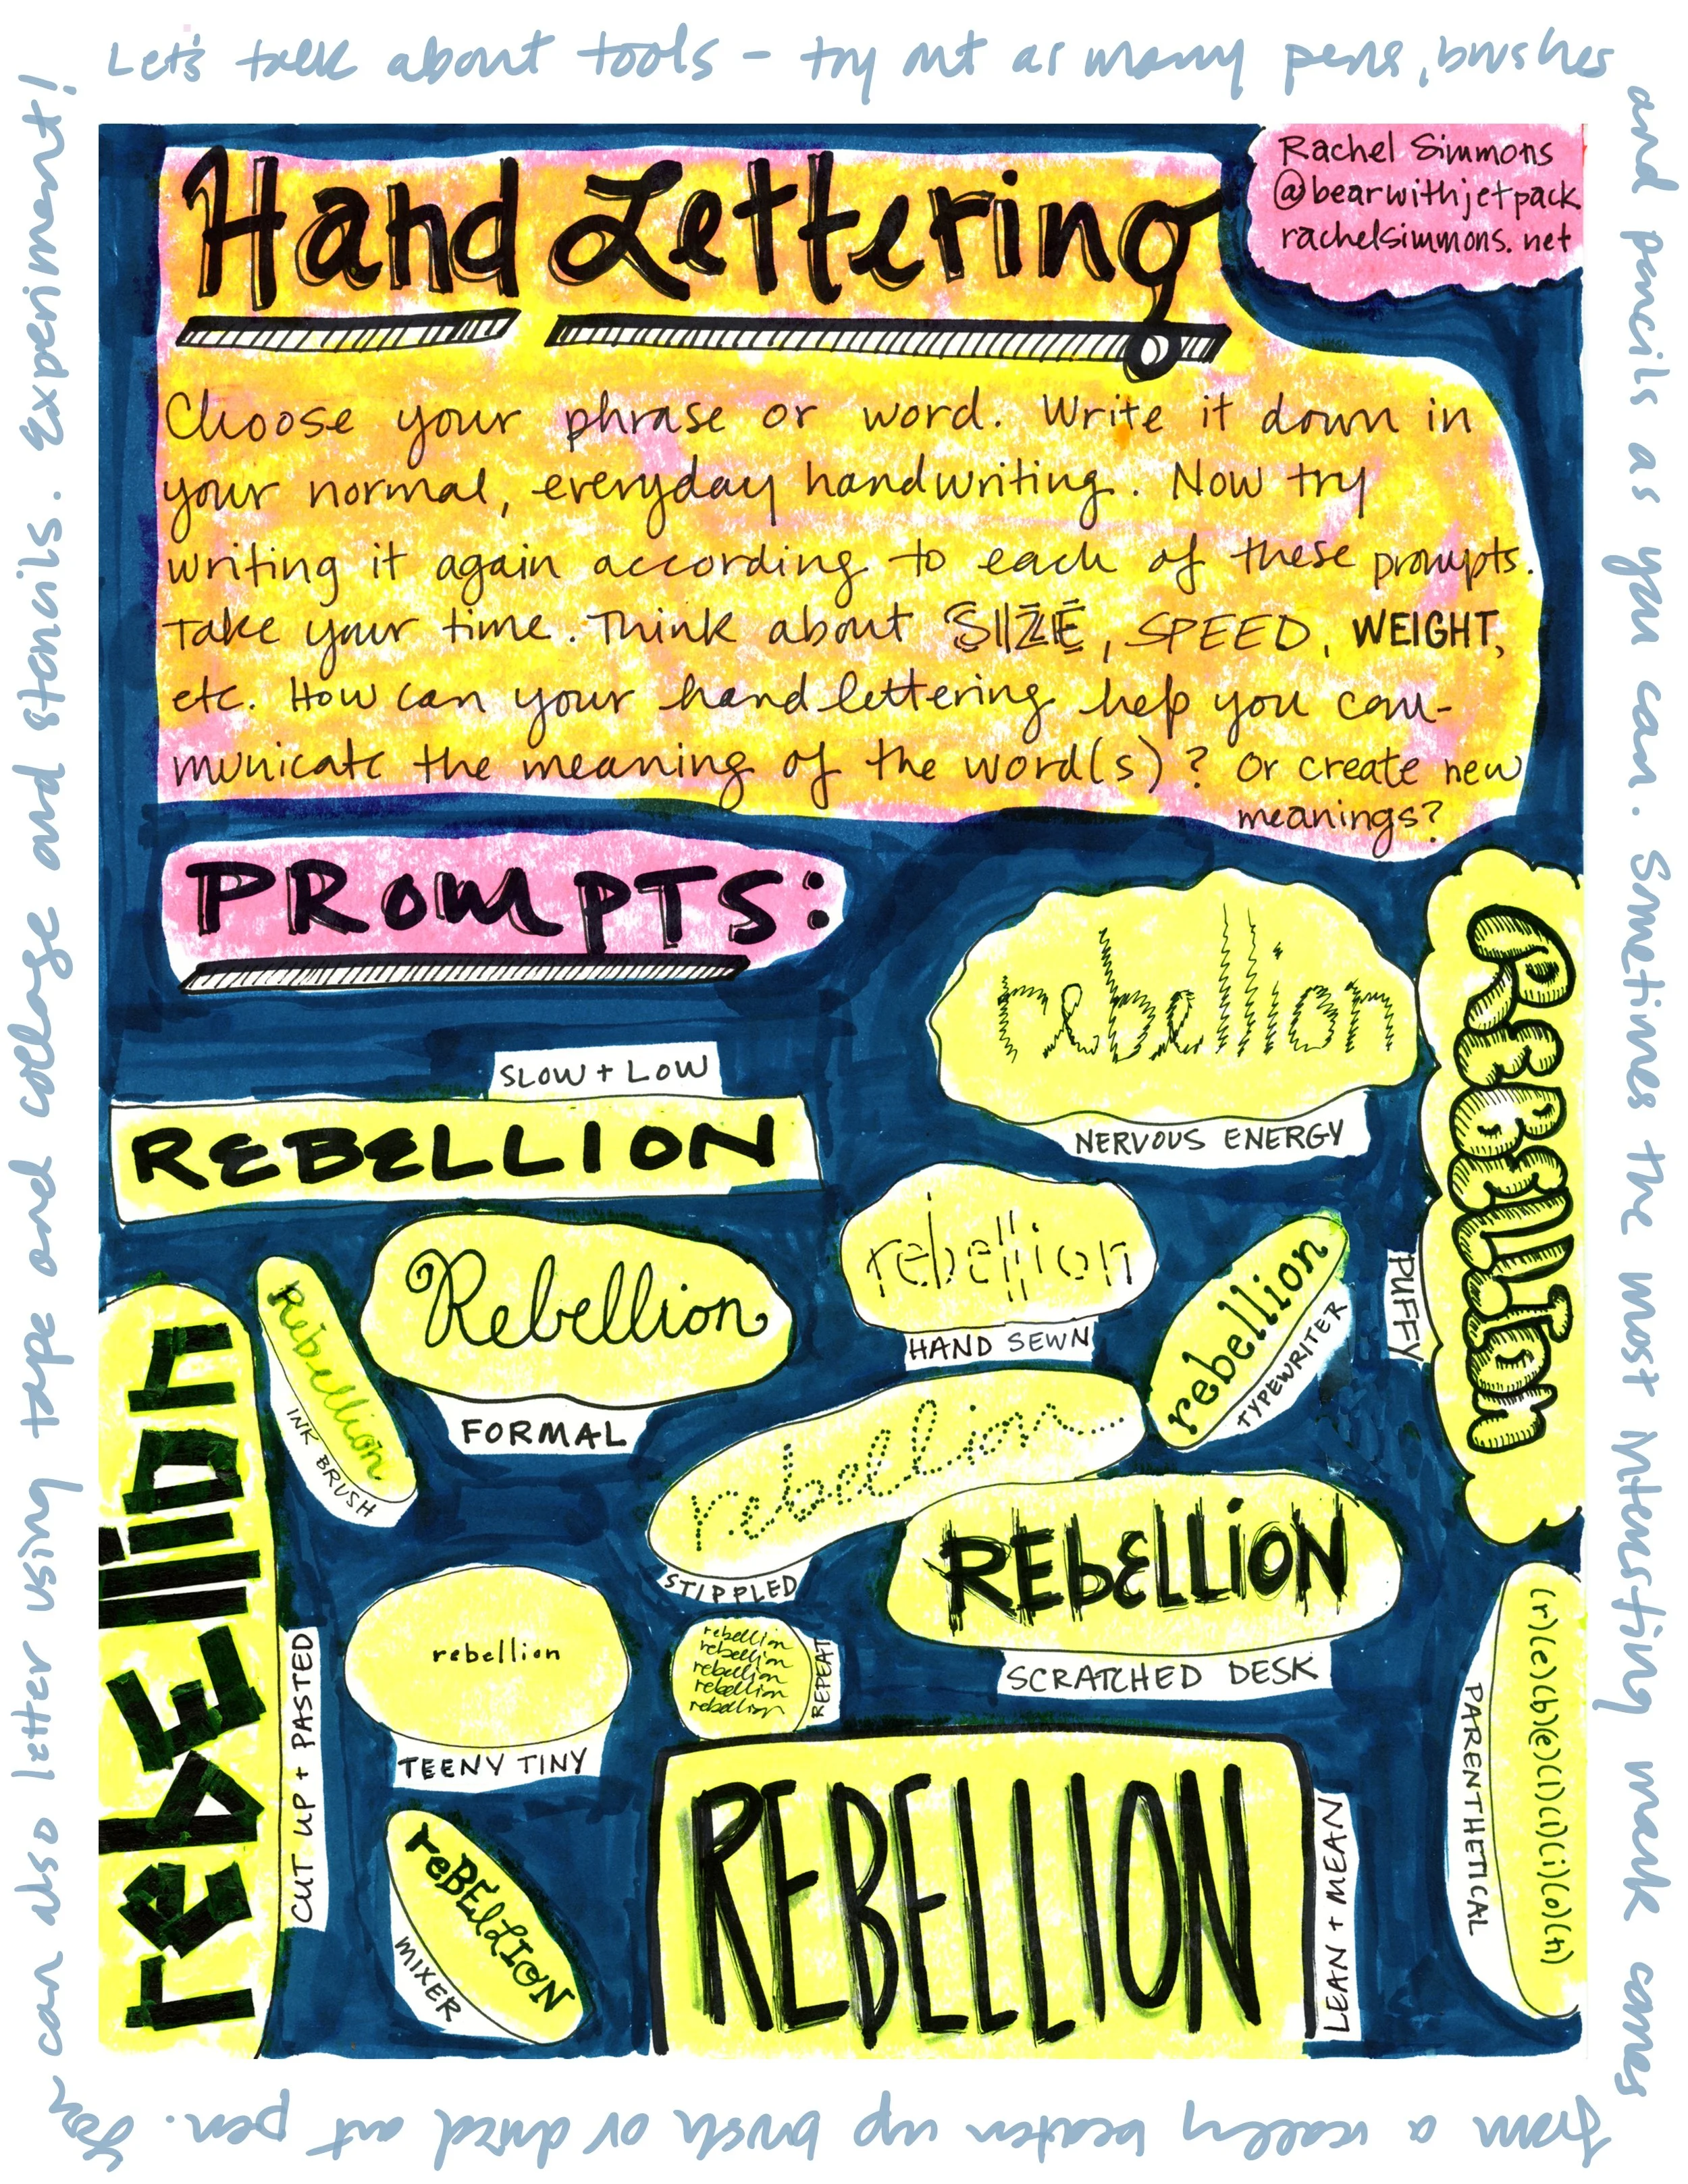 Let's talk about tools - try out as many pens, brushes
and pencils as you can. Sometimes the most interesting mark comes
from a really beaten up brush or dried out pen. You
can also letter using tape and collage and stencils. Experiment!
Rachel Simmons
@bearwithjetpack
rachelsimmons.net
Hand Lettering
Choose your phrase or word. Write it down in
your normal, everyday handwriting. Now try
writing it again according to each of these prompts.
Take your time. Think about SIZE, SPEED, WEIGHT,
etc. How can your hand lettering help you com-
municate the meaning of the word(s)? Or create new
meanings?
PROmpTS:
rebellion
NERVOUS ENERGY
REBELLION
PUFFY
SLOW + LOW
REBELLION
Rebellion
FORMAL
rebellion
HAND SEWN
rebellion
TYPEWRITER
Rebellion
INK BRUSH
rebellion
STIPPLED
REbELLiON
SCRATCHED DESK
rebEllion
CUT UP + PASTED
rebellion
TEENY TINY
rebellion
rebellion
rebellion
rebellion
rebellion
REPEAT
reBElLION
MIXER
REBELLION
LEAN + MEAN
(r)(e)(b)(e)(l)(l)(i)(o)(n)
PARENTHETICAL